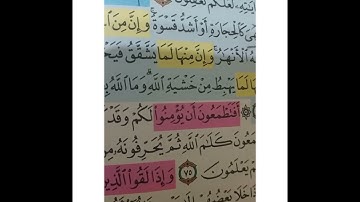 ءَايَـٰتِهِۦ لَعَلَّكُمْ تَعْقِلُونَ
كَٱلْحِجَارَةِ أَوْ أَشَدُّ قَسْوَةً ۚ وَإِنَّ مِنَ
ٱلْأَنْهَـٰرُ ۚ وَإِنَّ مِنْهَا لَمَا يَشَّقَّقُ فَيَخْ
لَمَا يَهْبِطُ مِنْ خَشْيَةِ ٱللَّهِ ۗ وَمَا ٱللَّهُ بِ
أَفَتَطْمَعُونَ أَن يُؤْمِنُوا۟ لَكُمْ وَقَدْ كَ
مَعُونَ كَلَـٰمَ ٱللَّهِ ثُمَّ يُحَرِّفُونَهُۥ مِنۢ
يَعْلَمُونَ ٧٥ وَإِذَا لَقُوا۟ ٱلَّذِينَ
خَلَا بَعْضُهُمْ